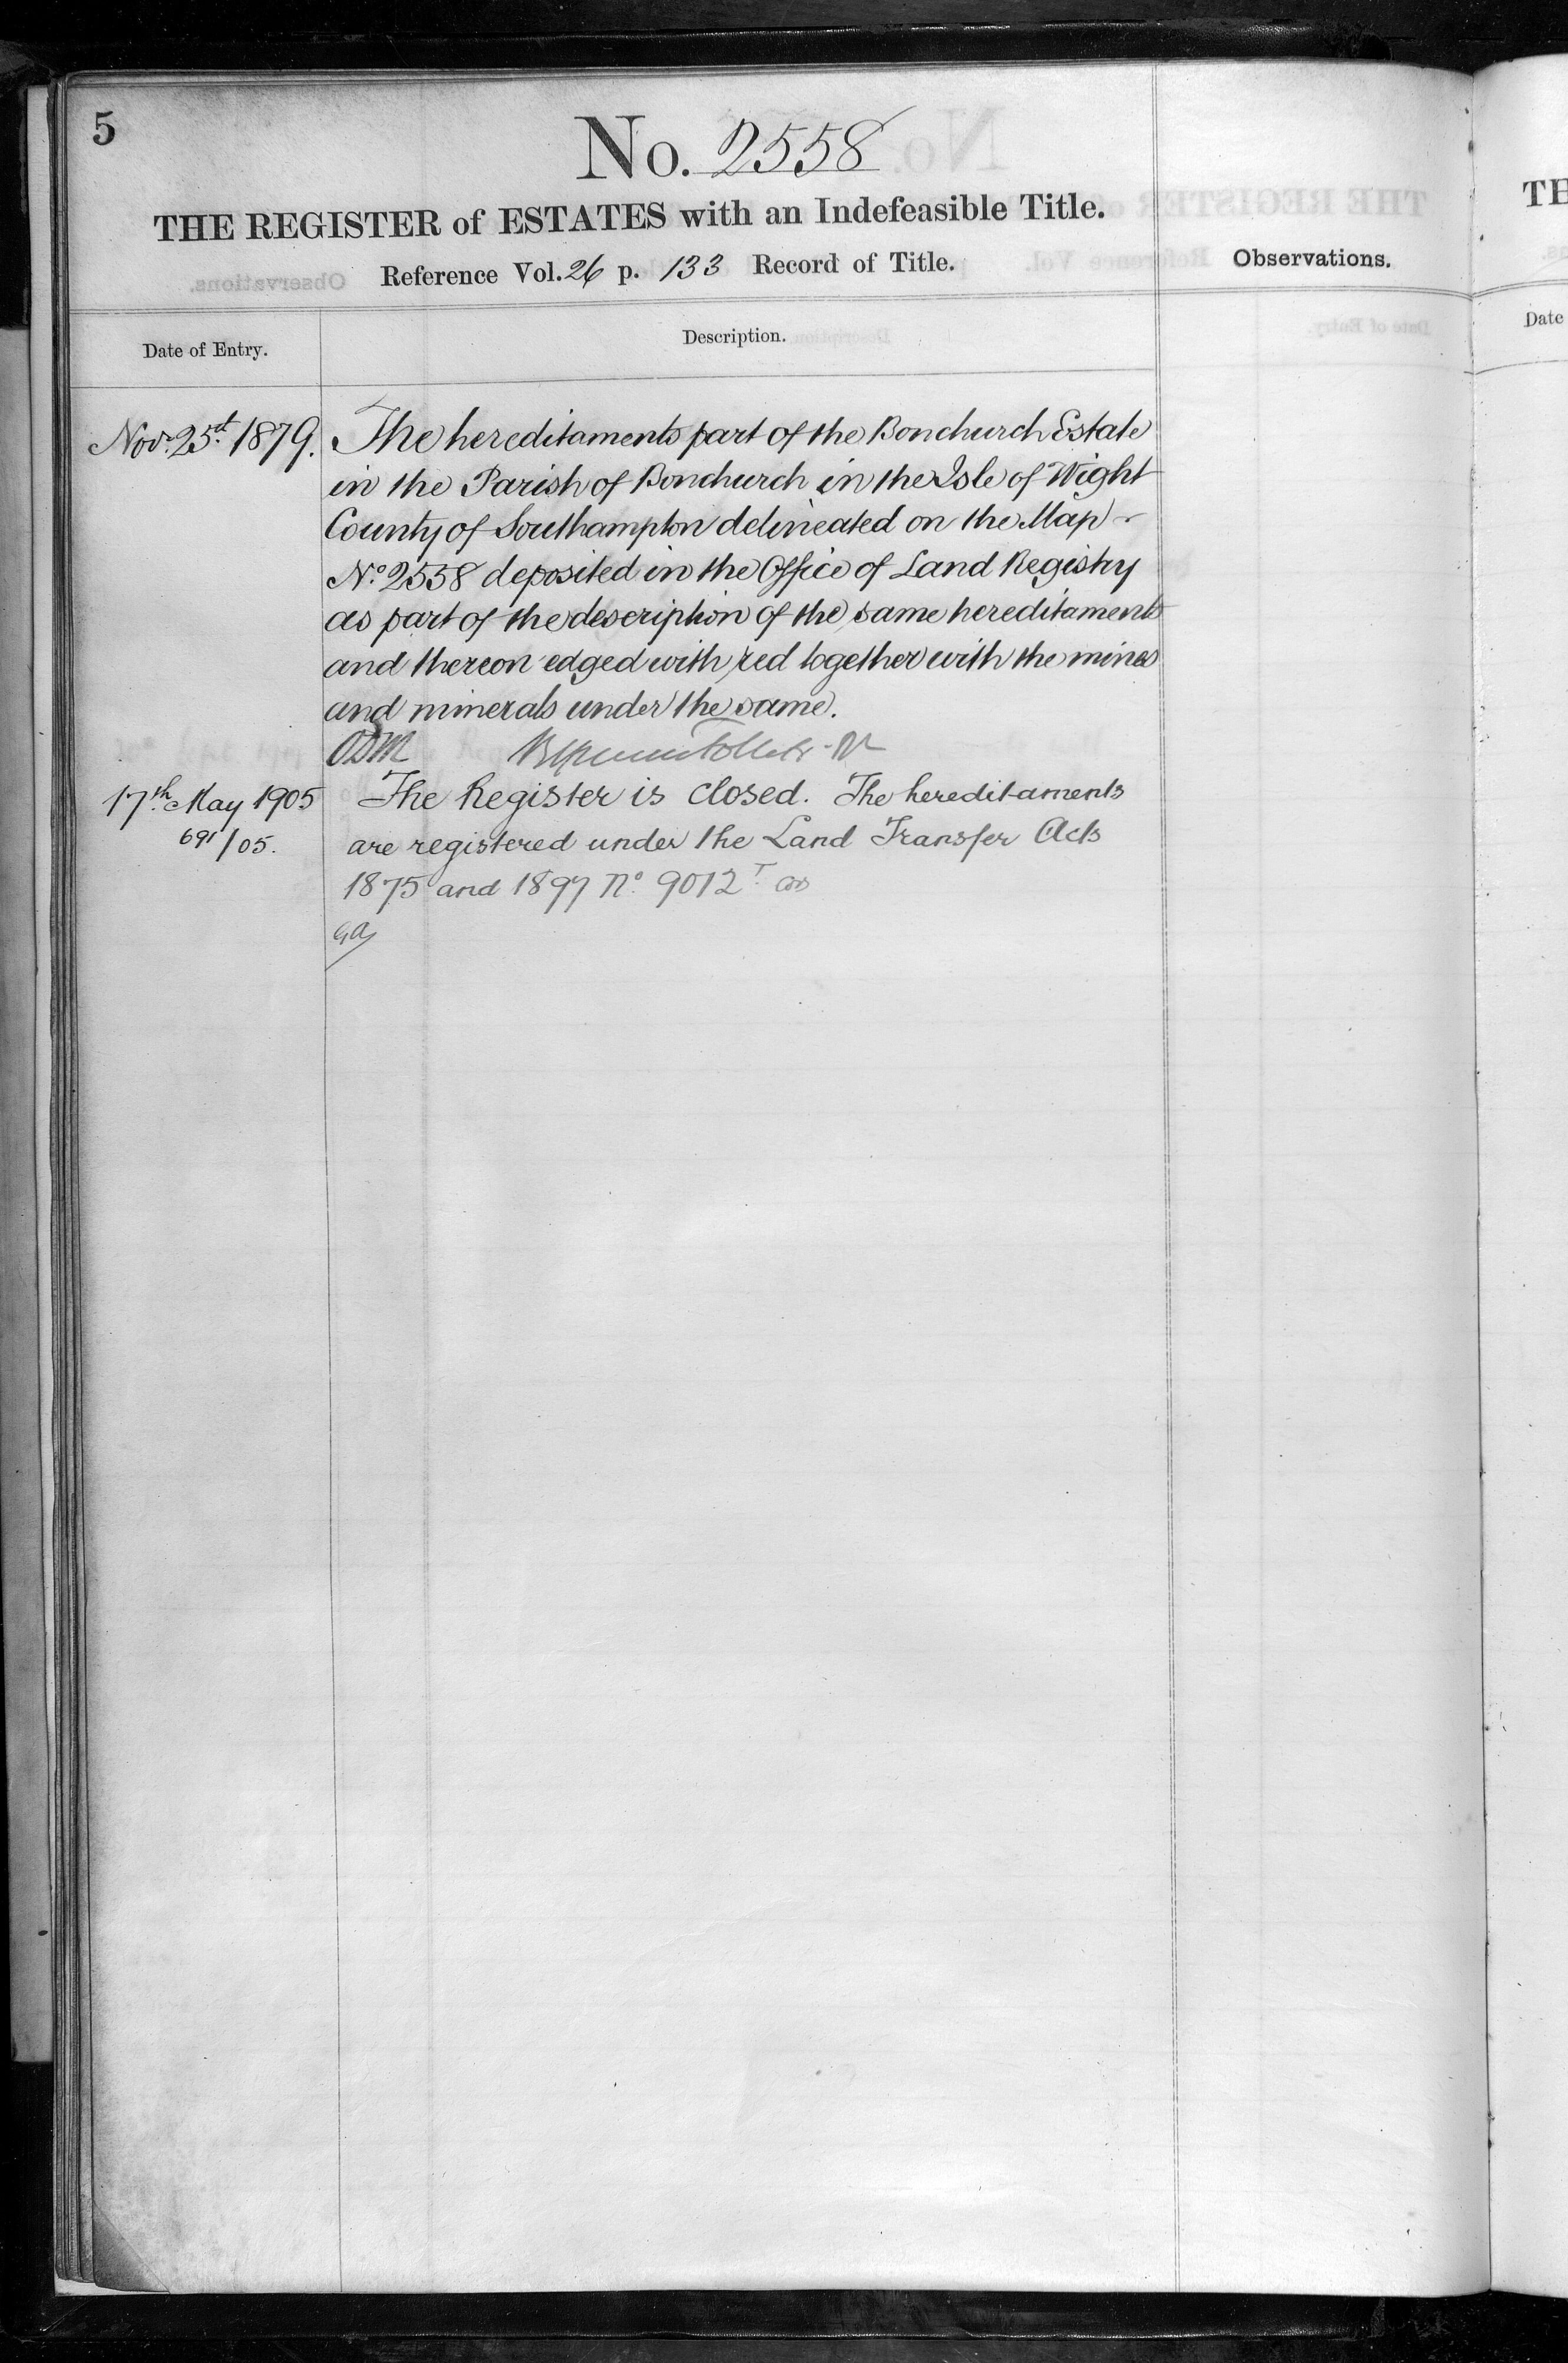 5
No. 2558
THE REGISTER of ESTATES with an Indefeasible Title.
Reference Vol. 26 p. 133 Record of Title.
Observations.
Date of Entry.
Description.
Nov. 25th 1879.
The hereditaments part of the Bonchurch Estate
in the Parish of Bonchurch in the Isle of Wight
County of Southampton delineated on the Map
No. 2558 deposited in the Office of Land Registry
as part of the description of the same hereditaments
and thereon edged with red together with the mines
and minerals under the same.
17th May 1905
691/05.
The Register is closed. The hereditaments
are registered under the Land Transfer Acts
1875 and 1897 No. 9012
TH
Date